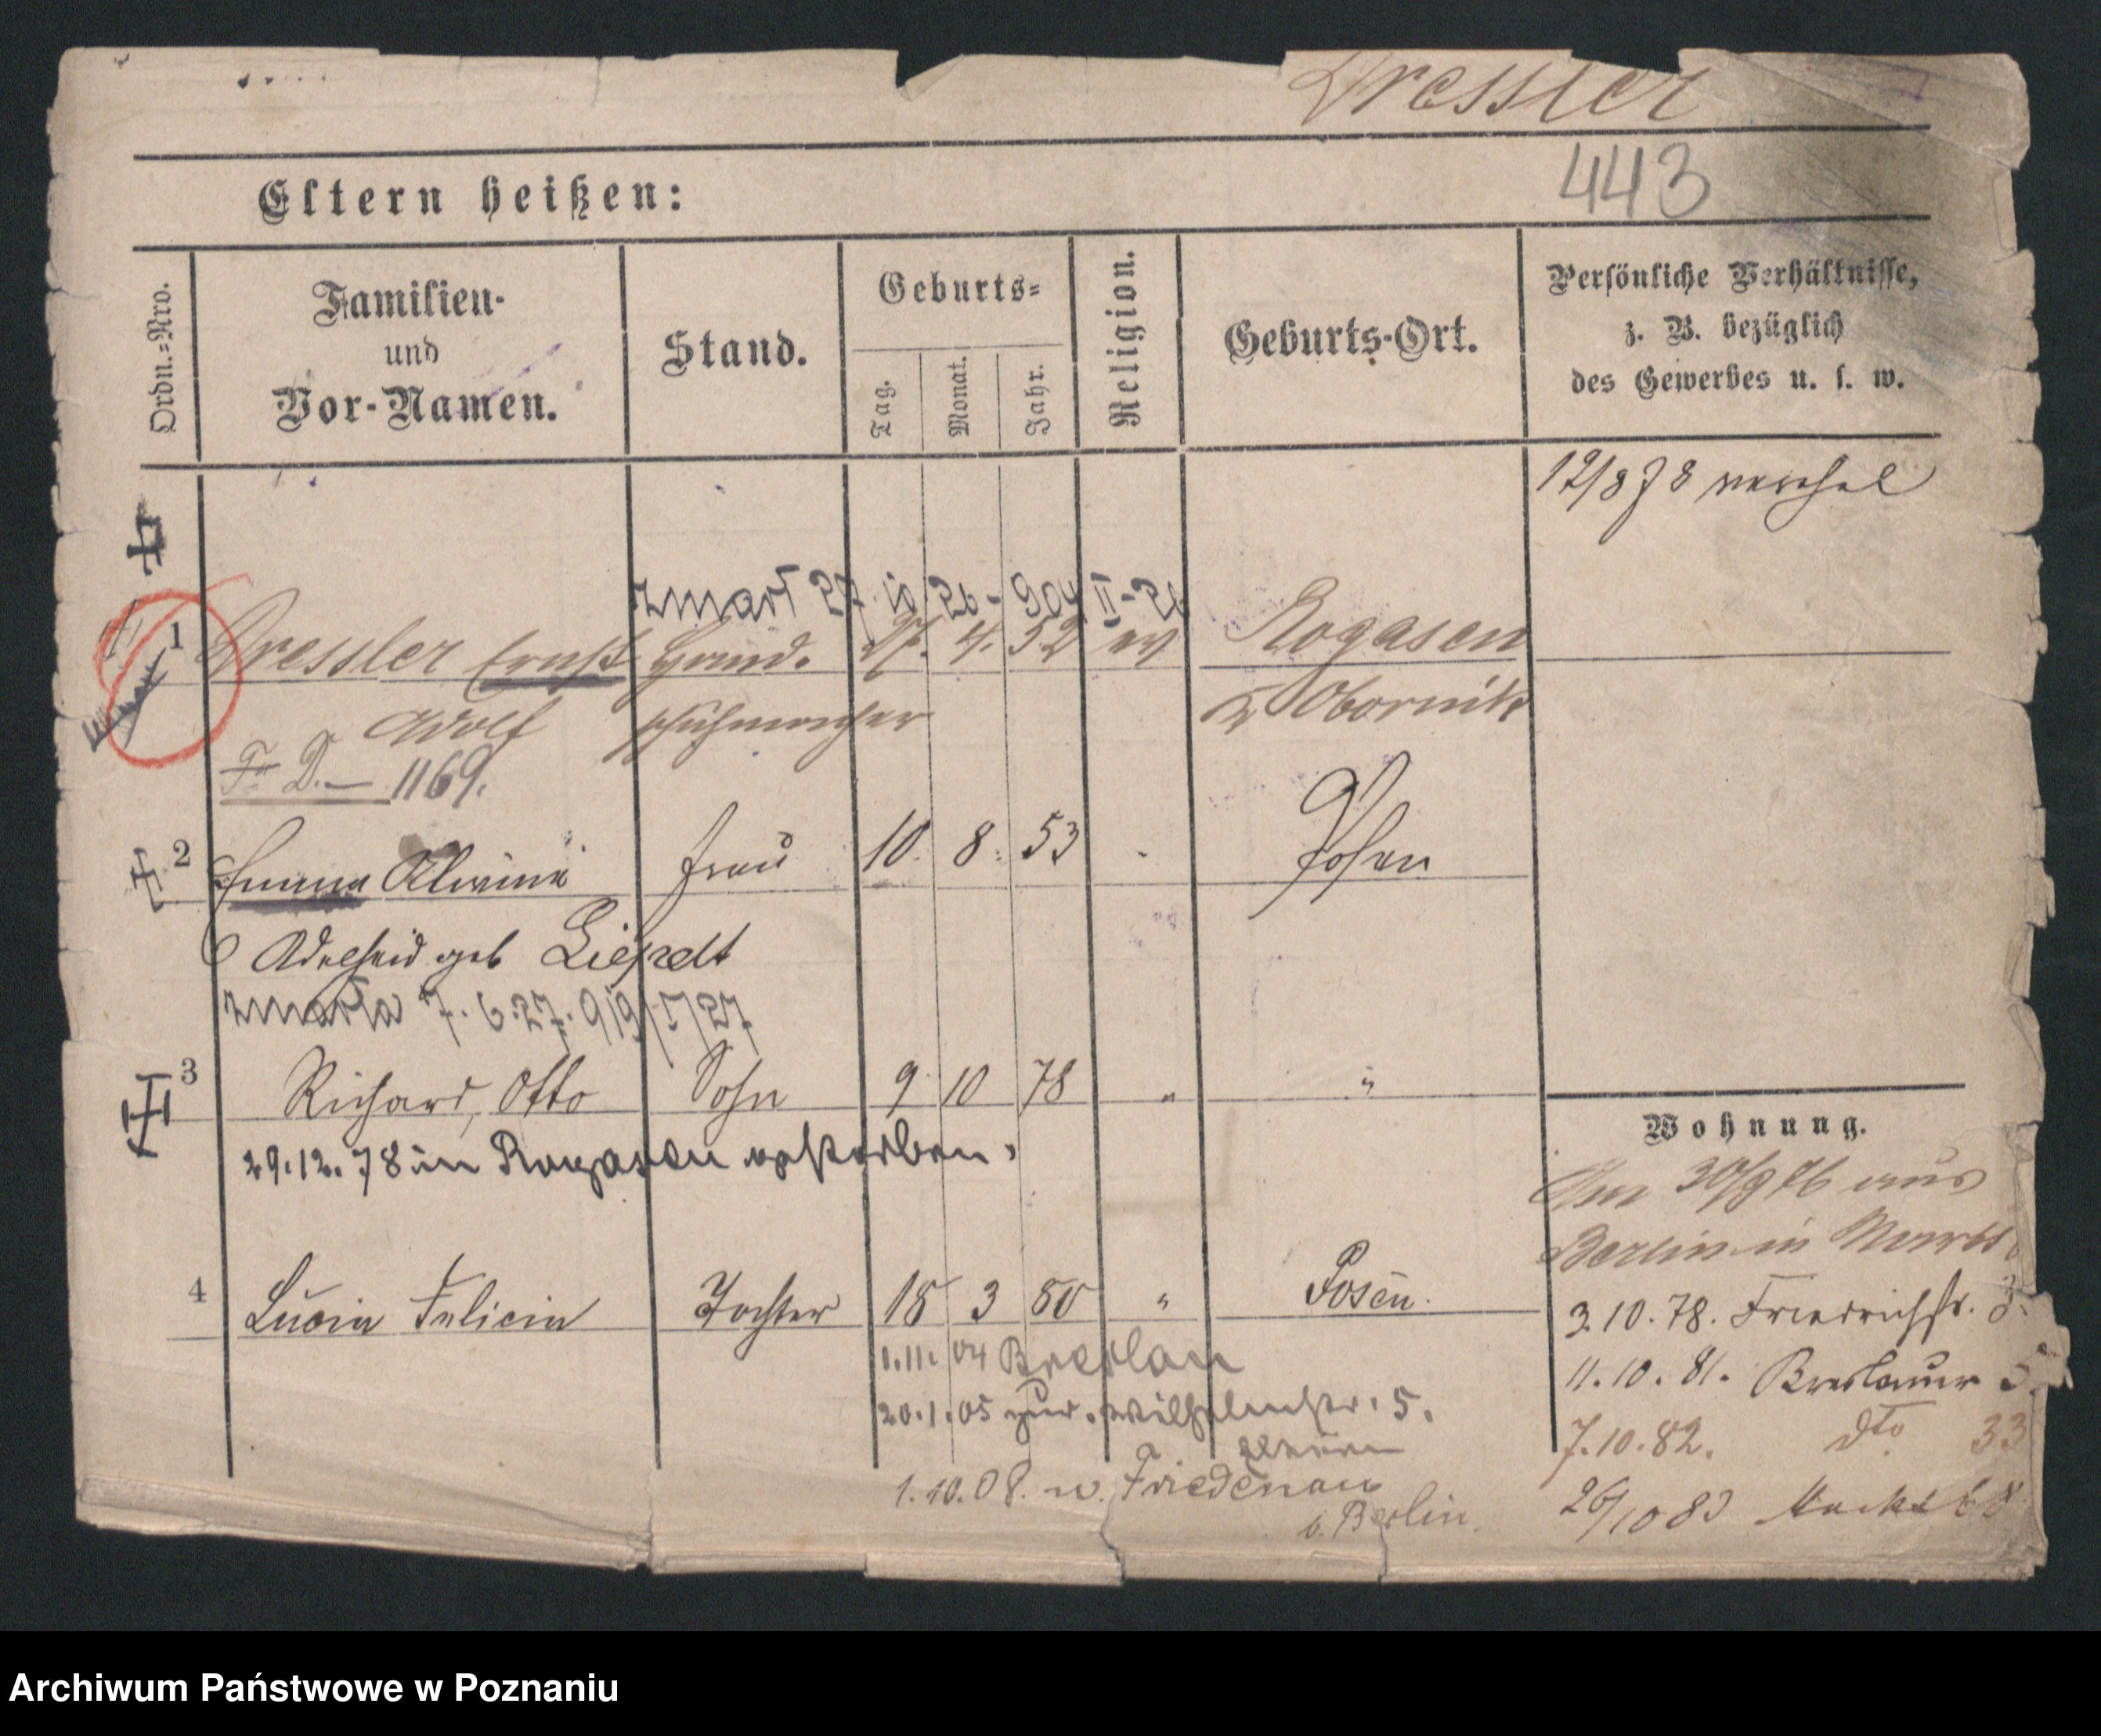 Dressler
443
Eltern heißen:
Ordn.=Nro.
Familien-
und
Vor-Namen.
Stand.
Geburts=
Tag.
Monat.
Jahr.
Religion.
Geburts-Ort.
Persönliche Verhältnisse,
z. B. bezüglich
des Gewerbes u. s. w.
12/8 78
zmarł 27. 10. 26 - 904
1 Dressler Ernst 27. 4. 52 ev Rogasen
Adolf Schuhmacher Obornik
D. — 1169.
2 Emma Alwine Frau 10. 8. 53 Posen
Adelheid geb
zmarła 7. 6. 27. 919
3 Richard, Otto Sohn 9 10 78 " "
29.12.78 in Rogasen gestorben.
4 Lucia Felicia Tochter 18 3 80 " Posen.
1.11. 04 Breslau
20.1.05 zur. Wilhelmstr. 5.
1.10.08. n. Friedenau
b. Berlin.
Wohnung.
Am 30/9 76 aus
Berlin in
3.10.78. Friedrichstr.
11.10.81. Breslauer
7.10.82. dto 33
26/10 83